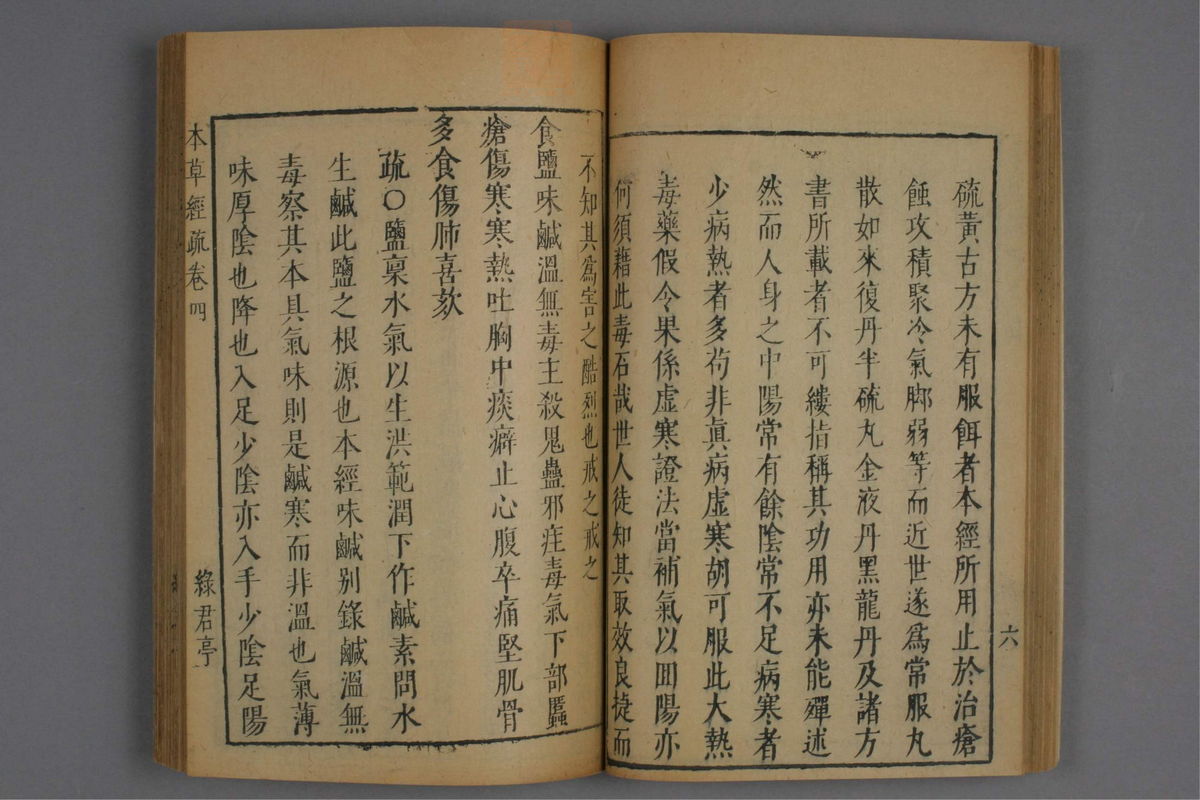 硫黃古方未有服餌者本經所用止於治瘡
蝕攻積聚冷氣脚弱等而近世遂爲常服丸
散如來復丹半硫丸金液丹黑龍丹及諸方
書所載者不可縷指稱其功用亦未能殫述
然而人身之中陽常有餘陰常不足病寒者
少病熱者多苟非眞病虛寒胡可服此大熱
毒藥假令果係虛寒證法當補氣以囬陽亦
何須藉此毒石哉世人徒知其取效良捷而
六
不知其爲害之酷烈也戒之戒之
食鹽味鹹溫無毒主殺鬼蠱邪疰毒氣下部䘌
瘡傷寒寒熱吐胸中痰癖止心腹卒痛堅肌骨
多食傷肺喜欬
疏〇鹽稟水氣以生洪範潤下作鹹素問水
生鹹此鹽之根源也本經味鹹别錄鹹溫無
毒察其本具氣味則是鹹寒而非溫也氣薄
味厚陰也降也入足少陰亦入手少陰足陽
本草經疏卷四
綠君亭